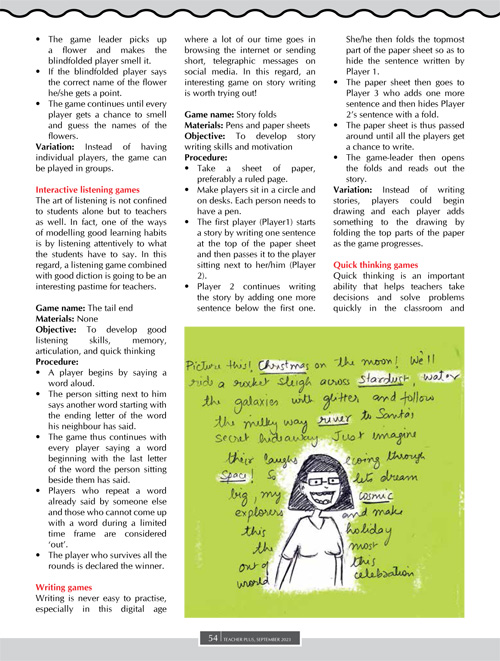 • The game leader picks up
a flower and makes the
blindfolded player smell it.
• If the blindfolded player says
the correct name of the flower
he/she gets a point.
• The game continues until every
player gets a chance to smell
and guess the names of the
flowers.
Variation: Instead of having
individual players, the game can
be played in groups.
Interactive listening games
The art of listening is not confined
to students alone but to teachers
as well. In fact, one of the ways
of modelling good learning habits
is by listening attentively to what
the students have to say. In this
regard, a listening game combined
with good diction is going to be an
interesting pastime for teachers.
Game name: The tail end
Materials: None
Objective: To develop good
listening skills, memory,
articulation, and quick thinking
Procedure:
• A player begins by saying a
word aloud.
• The person sitting next to him
says another word starting with
the ending letter of the word
his neighbour has said.
• The game thus continues with
every player saying a word
beginning with the last letter
of the word the person sitting
beside them has said.
• Players who repeat a word
already said by someone else
and those who cannot come up
with a word during a limited
time frame are considered
‘out’.
• The player who survives all the
rounds is declared the winner.
Writing games
Writing is never easy to practise,
especially in this digital age
where a lot of our time goes in
browsing the internet or sending
short, telegraphic messages on
social media. In this regard, an
interesting game on story writing
is worth trying out!
Game name: Story folds
Materials: Pens and paper sheets
Objective: To develop story
writing skills and motivation
Procedure:
• Take a sheet of paper,
preferably a ruled page.
• Make players sit in a circle and
on desks. Each person needs to
have a pen.
• The first player (Player1) starts
a story by writing one sentence
at the top of the paper sheet
and then passes it to the player
sitting next to her/him (Player
2).
• Player 2 continues writing
the story by adding one more
sentence below the first one.
She/he then folds the topmost
part of the paper sheet so as to
hide the sentence written by
Player 1.
• The paper sheet then goes to
Player 3 who adds one more
sentence and then hides Player
2’s sentence with a fold.
• The paper sheet is thus passed
around until all the players get
a chance to write.
• The game-leader then opens
the folds and reads out the
story.
Variation: Instead of writing
stories, players could begin
drawing and each player adds
something to the drawing by
folding the top parts of the paper
as the game progresses.
Quick thinking games
Quick thinking is an important
ability that helps teachers take
decisions and solve problems
quickly in the classroom and
Picture this! Christmas on the moon! We'll
ride a rocket sleigh across stardust, water
the galaxies with glitter and follow
the milky way river to Santa's
secret hideaway. Just imagine
their laughs echoing through
space! So lets dream
big, my cosmic
explorers and make
this holiday
the most
out of this
world celebration
54 | TEACHER PLUS, SEPTEMBER 2023